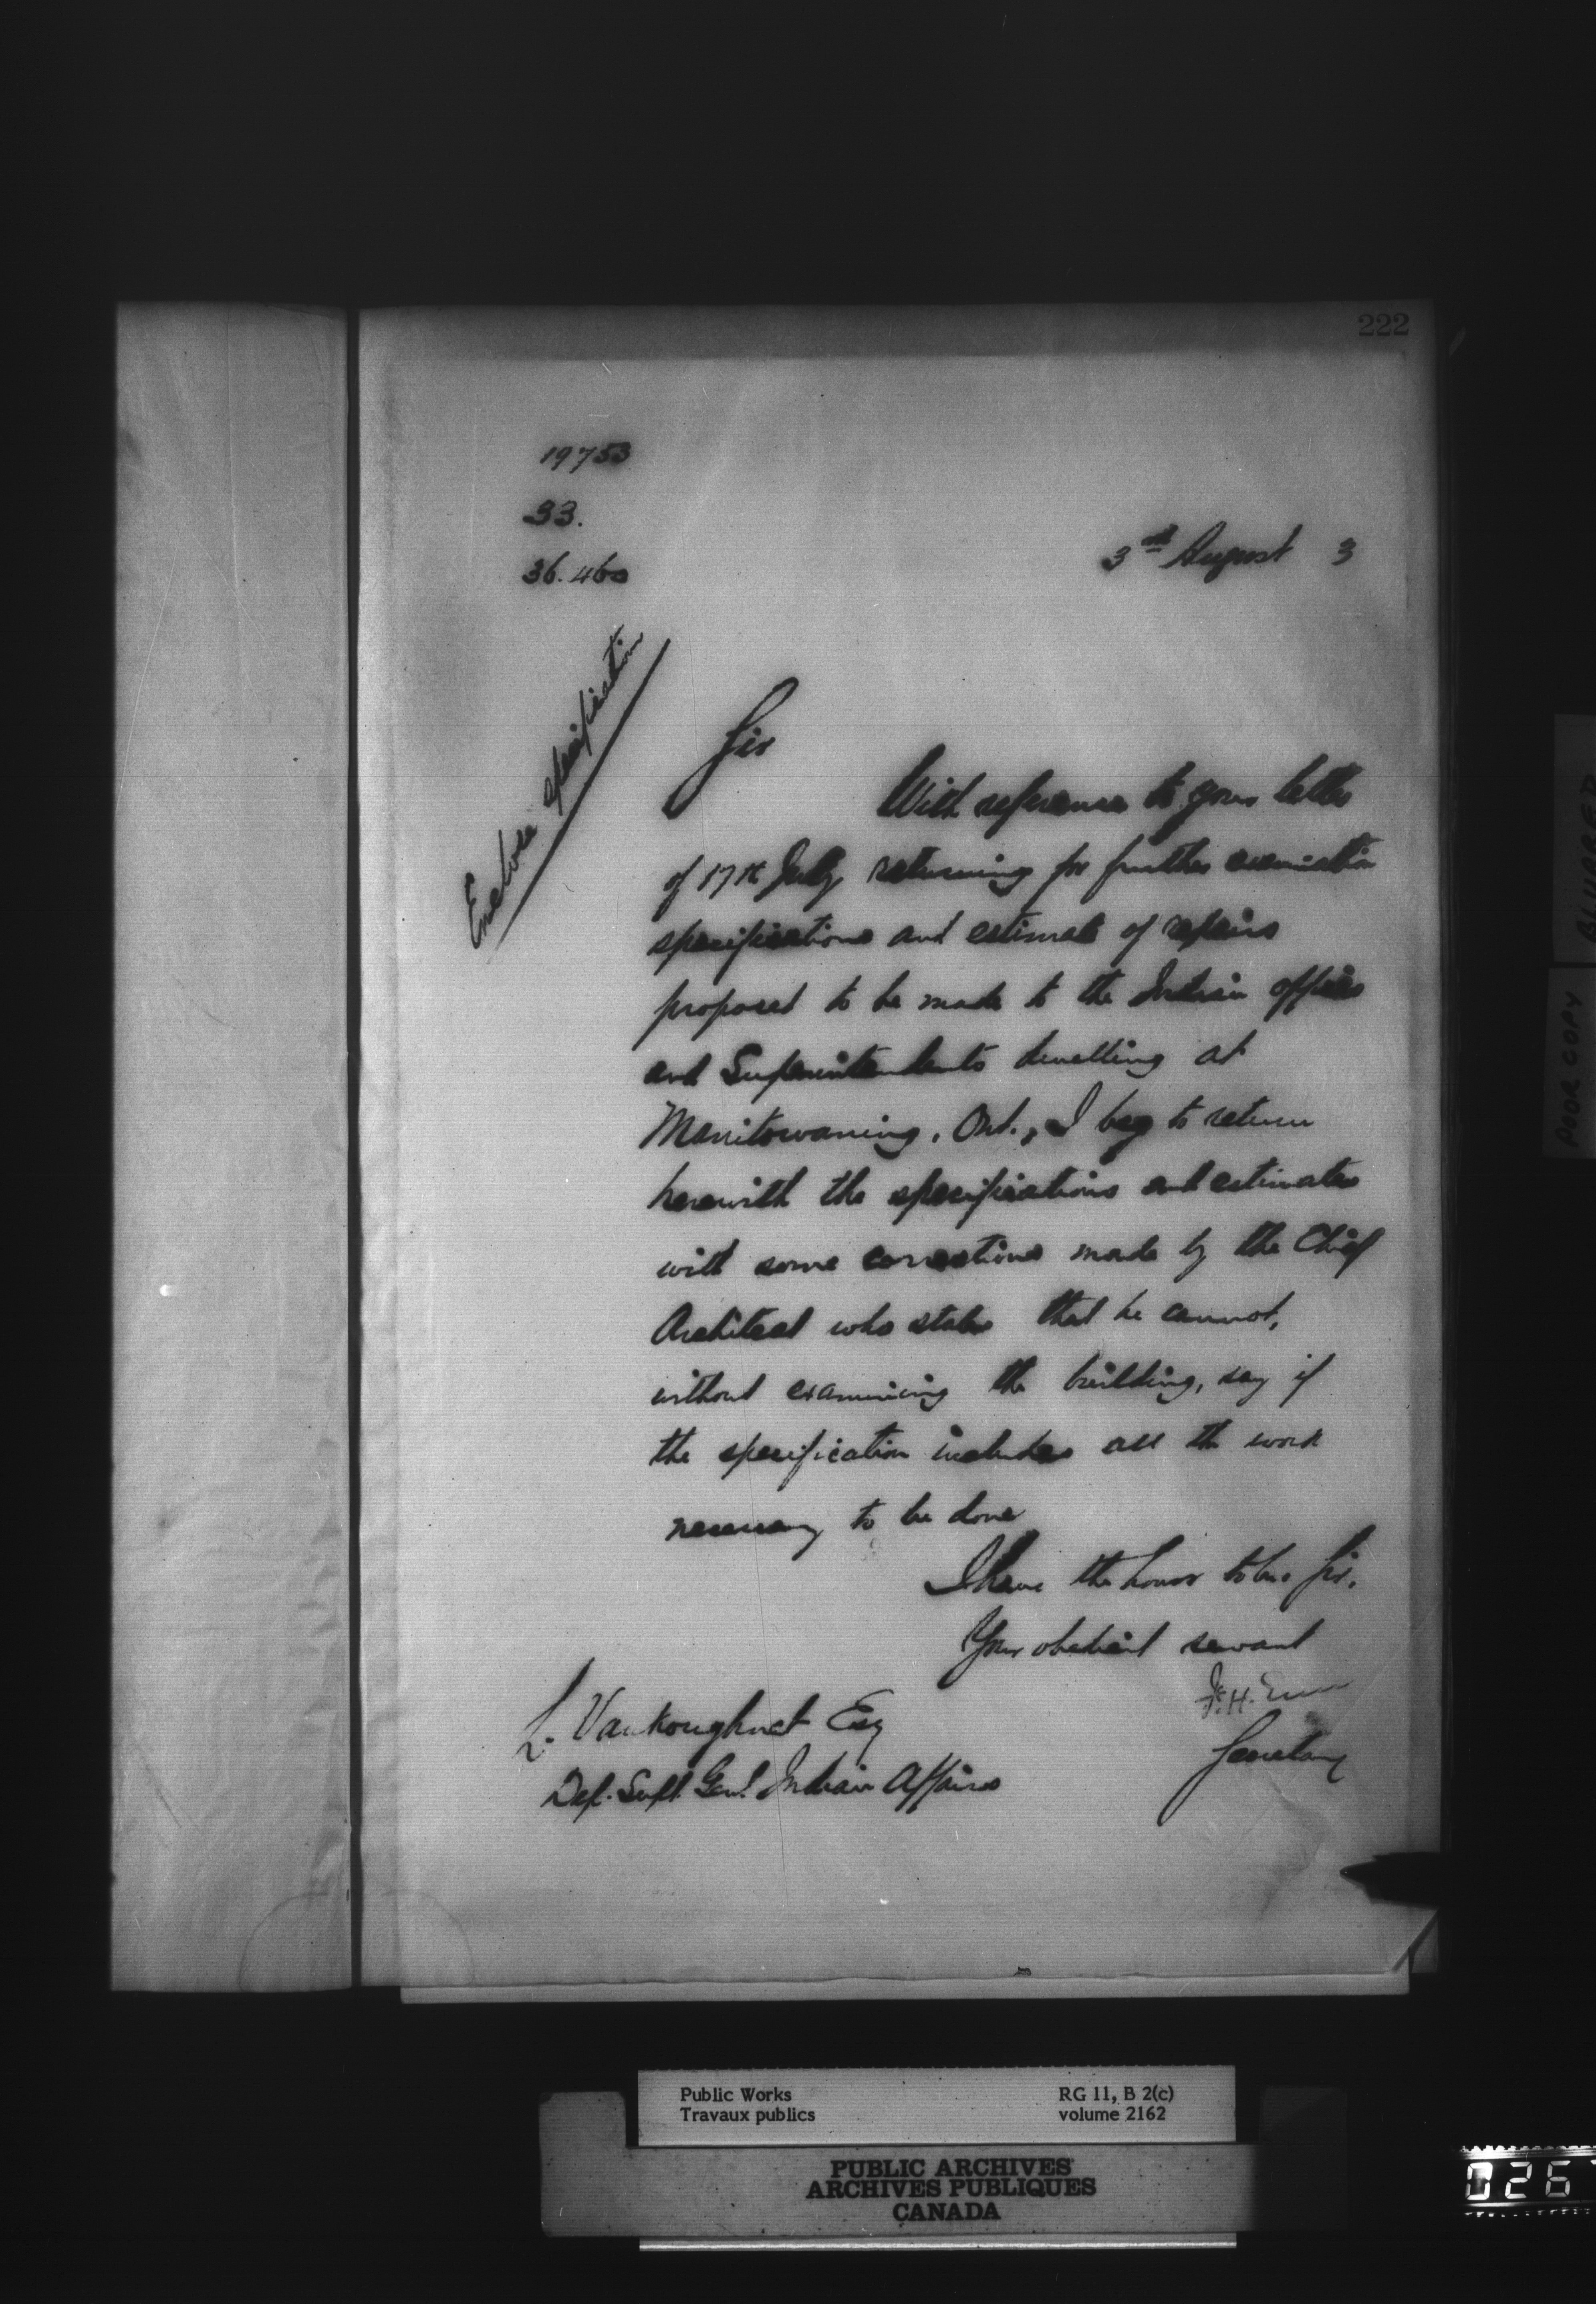 222
19753
33.
36.460
3rd August 3
Enclose specification
Sir
With reference to your letter
of 17th July returning for further examination
specifications and estimate of repairs
proposed to be made to the Indian offices
and Superintendents dwelling at
Manitowaning, Ont., I beg to return
herewith the specifications and estimates
with some corrections made by the Chief
Architect who states that he cannot,
without examining the building, say if
the specification includes all the work
necessary to be done
I have the honor to be Sir,
Your obedient servant
F. H. Ennis
Secretary
L. Vankoughnet Esq
Dep. Supt. Genl. Indian Affairs
BLURRED
POOR COPY
Public Works
Travaux publics
RG 11, B 2(c)
volume 2162
PUBLIC ARCHIVES
ARCHIVES PUBLIQUES
CANADA
026